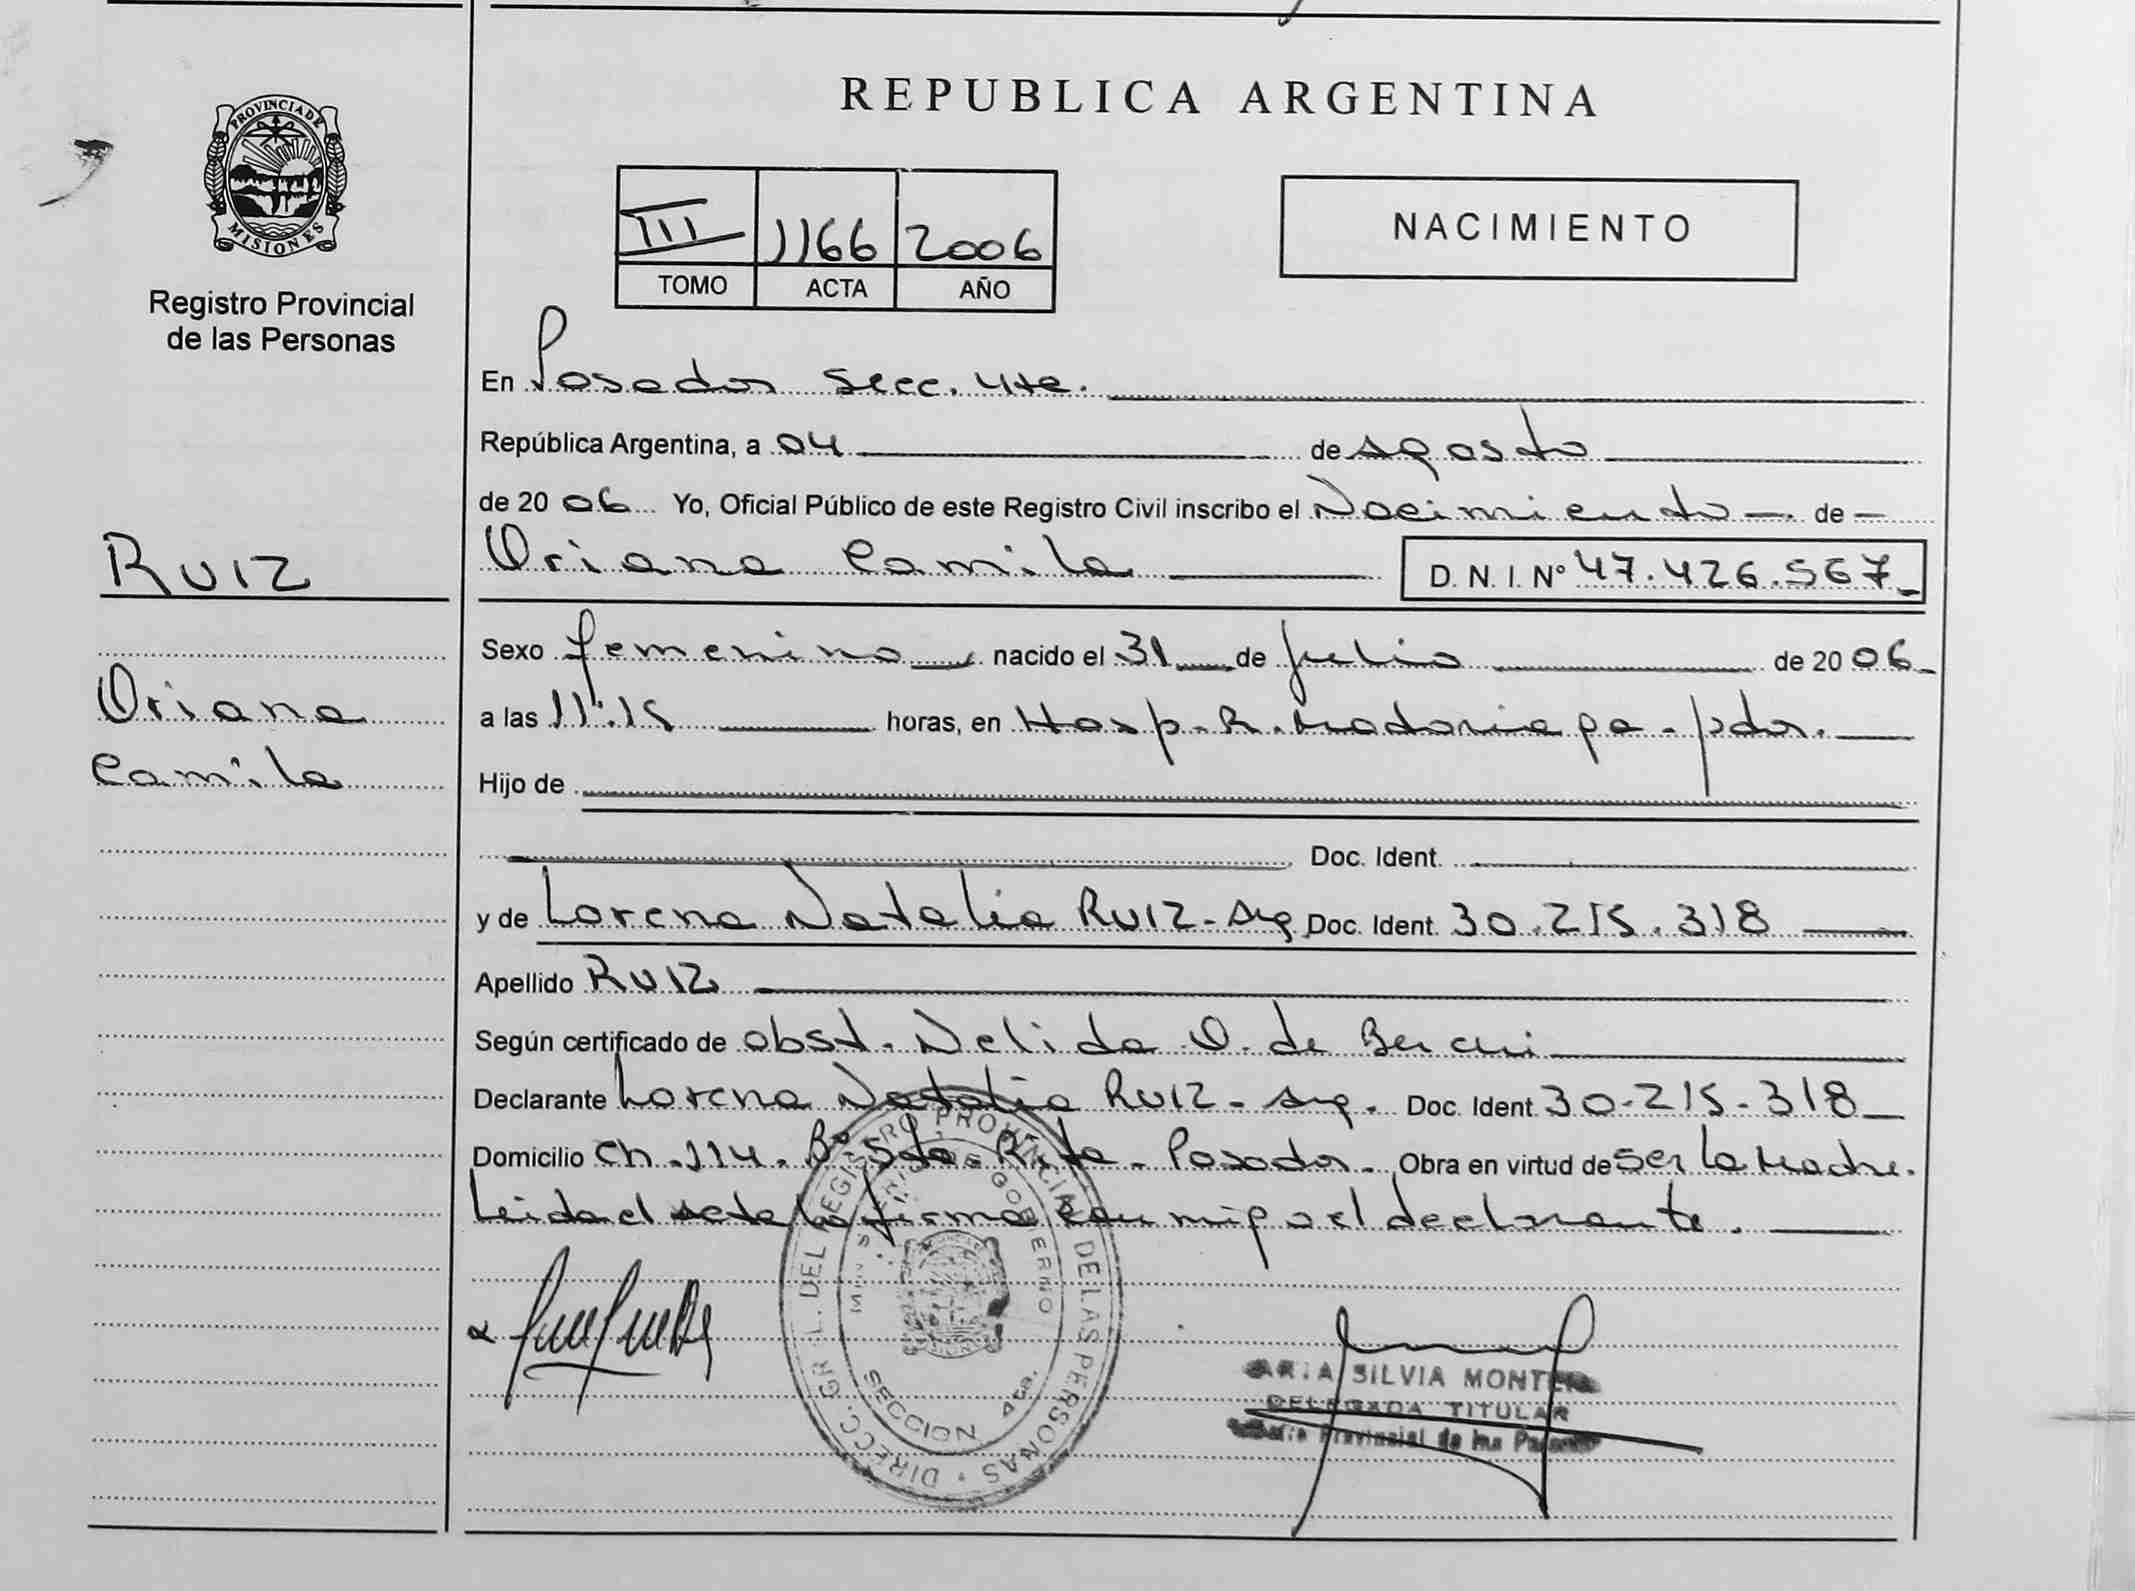 PROVINCIA DE
MISIONES
Registro Provincial
de las Personas
RUIZ
Oriana
Camila
REPUBLICA ARGENTINA
III 1166 2006
TOMO ACTA AÑO
NACIMIENTO
En Posadas Secc. 4ta.
República Argentina, a 04 de agosto
de 2006 Yo, Oficial Público de este Registro Civil inscribo el Nacimiento de
Oriana Camila D. N. I. Nº 47.426.567
Sexo femenino nacido el 31 de julio de 2006
a las 11:15 horas, en Hosp. R. Madariaga - pdas.
Hijo de
Doc. Ident.
y de Lorena Natalia RUIZ - Arg. Doc. Ident. 30.215.318
Apellido RUIZ
Según certificado de obst. Nelida O. de
Declarante Lorena Natalia RUIZ - Arg. Doc. Ident 30.215.318
Domicilio Ch. 114. Bº Sta. Rita - Posadas. Obra en virtud de ser la Madre.
Leida el acta la firma conmigo el declarante.
DIRECC. GRAL. DEL REGISTRO PROVINCIAL DE LAS PERSONAS
GOBIERNO
SECCION 4ta.
SILVIA
DELEGADA TITULAR
Provincial de las